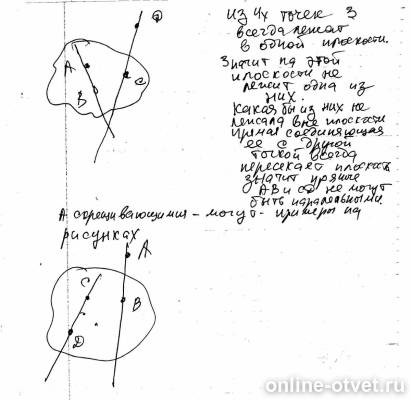 D
A
B
C
Из 4х точек 3
всегда лежат
в одной плоскости.
Значит на этой
плоскости не
лежит одна из
них.
Какая бы из них не
лежала вне плоскости
прямая соединяющая
ее с другой
точкой всегда
пересекает плоскость
значит прямые
AB и CD не могут
быть паралельными.
А скрещивающимися - могут - примеры на
рисунках
A
C
B
D
online-otvet.ru